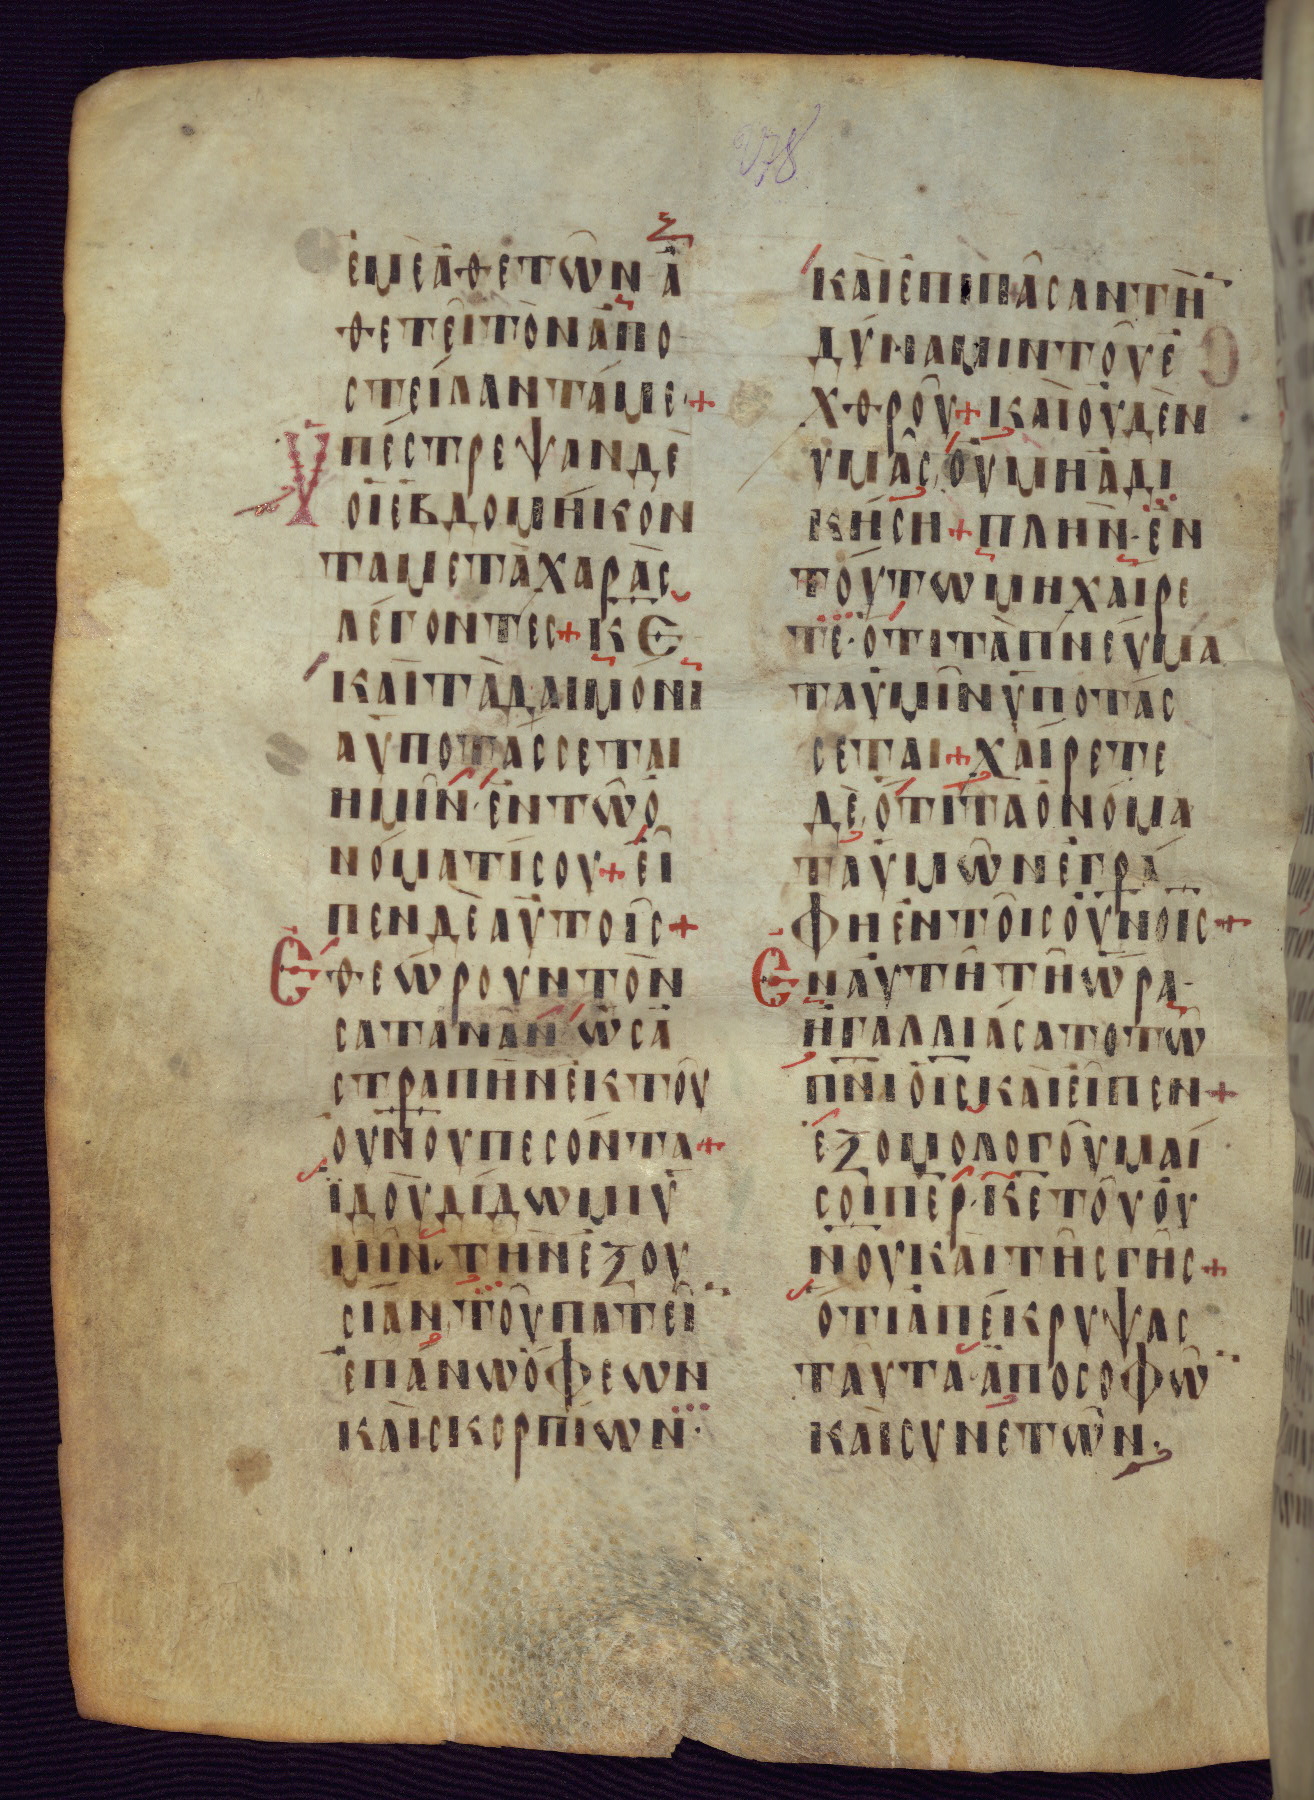 378
ἐμὲ ἀθετῶν ἀ
θετεῖ τὸν ἀπο
στείλαντά με +
Ὑπέστρεψαν δὲ
οἱ ἑβδομήκον
τα μετὰ χαρᾶς
λέγοντες + κ̅ε̅
καὶ τὰ δαιμόνι
α ὑποτάσσεται
ἡμῖν · ἐν τῷ ὀ
νόματί σου + εἶ
πεν δὲ αὐτοῖς +
Ἐθεώρουν τὸν
σατανᾶν ὡς ἀ
στραπὴν ἐκ τοῦ
ο̅υ̅ν̅ο̅υ̅ πεσόντα +
ἰδοὺ δίδωμι ὑ
μῖν · τὴν ἐξου
σίαν τοῦ πατεῖ
ἐπάνω ὄφεων
καὶ σκορπίων ·
καὶ ἐπὶ πᾶσαν τὴ
δύναμιν τοῦ ἐ
χθροῦ + καὶ οὐδὲν
ὑμᾶς οὐ μὴ ἀδι
κήσῃ + πλὴν · ἐν
τούτῳ μὴ χαίρε
τε · ὅτι τὰ πνεύμα
τα ὑμῖν ὑποτάσ
σεται + χαίρετε
δὲ, ὅτι τὰ ὀνόμα
τα ὑμῶν ἐγρά
φη ἐν τοῖς ο̅υ̅ν̅οῖς +
Ἐν αὐτῇ τῇ ὥρᾳ
ἠγαλλιάσατο τῷ
π̅ν̅ι̅ ὁ ι̅ς̅ καὶ εἶπεν +
ἐξομολογοῦμαί
σοι π̅ε̅ρ̅ · κ̅ε̅ τοῦ ο̅υ̅
ν̅ο̅υ̅ καὶ τῆς γῆς +
ὅτι ἀπέκρυψας
ταῦτα ἀπὸ σοφῶ
καὶ συνετῶν ·